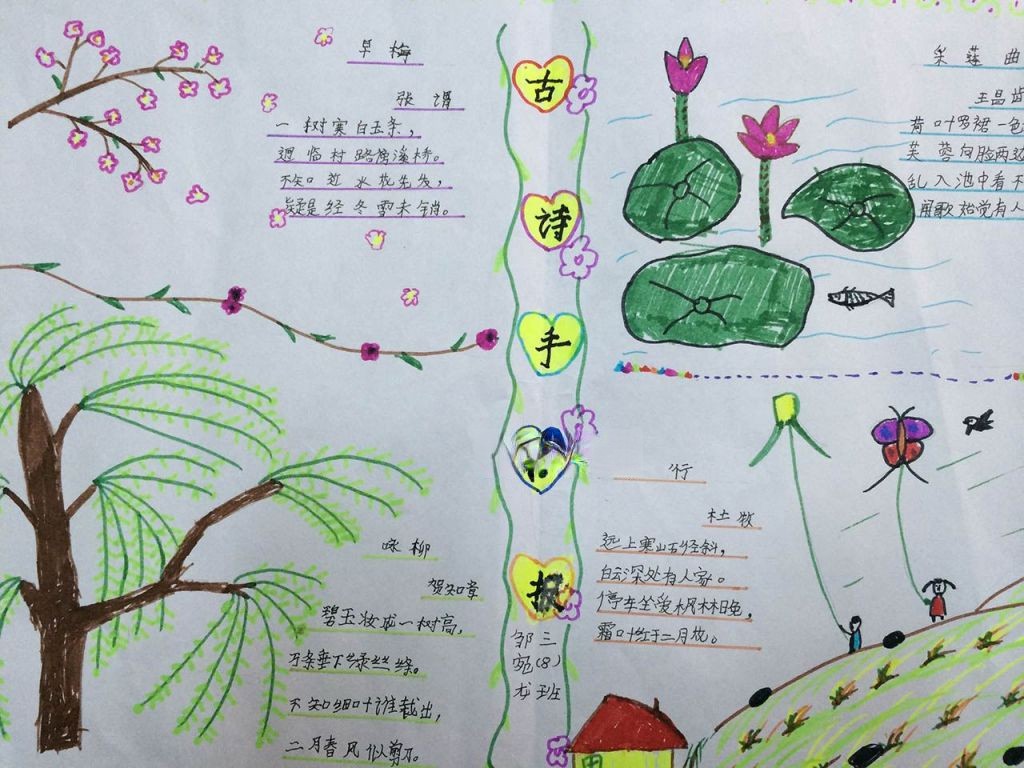 早梅
张谓
一树寒白玉条，
迥临村路傍溪桥。
不知近水花先发，
疑是经冬雪未销。
咏柳
贺知章
碧玉妆成一树高，
万条垂下绿丝绦。
不知细叶谁裁出，
二月春风似剪刀。
古
诗
手
报
三(8)班
邹宛龙
采莲曲
王昌龄
荷叶罗裙一色
芙蓉向脸两边
乱入池中看不
闻歌始觉有人
行
杜牧
远上寒山石径斜，
白云深处有人家。
停车坐爱枫林晚，
霜叶红于二月花。